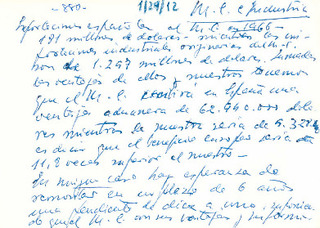 1/29/12 M.C. e Industria
Exportaciones españolas al M.C. en 1966 -
191 millones de dolares - mientras las im-
portaciones industriales originarias
ron de 1.297 millones de dolares. Sumadas
las ventajas de ellos y nuestras tenemos
que el M.C. en España una
ventaja aduanera de 62.940.000 dola-
res mientras la nuestra seria de 5.3
es decir que el beneficio europeo seria
11,8 veces superior al nuestro -
En ningun caso hay esperanza de
remontar en un plazo de 6 años
una pendiente de diez a uno,
el M.C. con sus ventajas y